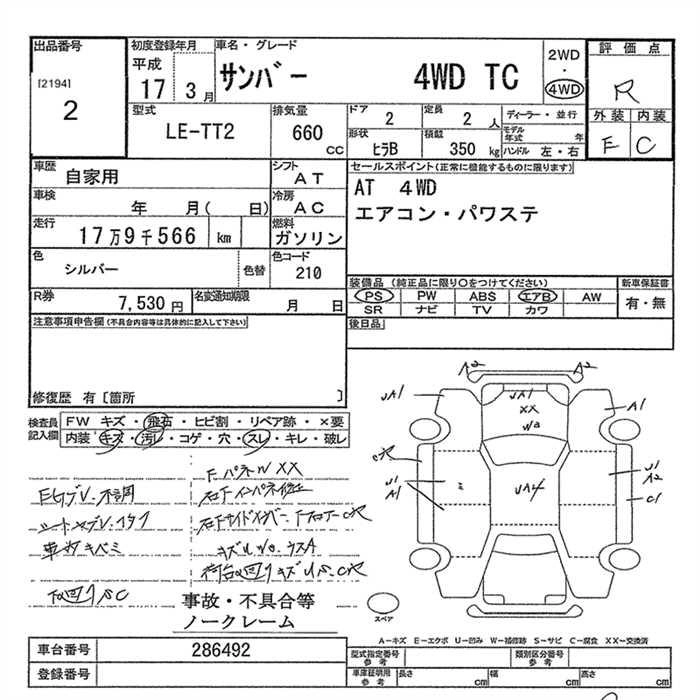 出品番号
[2194]
2
初度登録年月
平成
17 3月
車名・グレード
サンバー 4WD TC
2WD
・
4WD
評価点
R
外装 内装
E C
型式
LE-TT2
排気量
660
cc
ドア
2
定員
2 人
ディーラー・並行
形状
ヒラB
積載
350 kg
モデル年式 年
ハンドル 左・右
車歴
自家用
シフト
AT
車検
年 月( 日)
冷房
AC
走行
17万9千566 km
燃料
ガソリン
色
シルバー
色替
色コード
210
R券
7,530円
名変通知期限
月 日
セールスポイント(正常に機能するものに限ります)
AT 4WD
エアコン・パワステ
装備品(純正品に限り○をつけてください)
PS PW ABS エアB AW
SR ナビ TV カワ
新車保証書
有・無
後日品
注意事項申告欄(不具合内容等は具体的に記入して下さい)
修復歴 有[箇所 ]
検査員記入欄
FW キズ・飛石・ヒビ割・リペア跡・×要
内装・キズ・汚レ・コゲ・穴・スレ・キレ・破レ
FパネルXX
EGブレ・不調
下回りSC
事故・不具合等
ノークレーム
A2 A2
A1
UA1
XX
UA4
U1
A1
U1
A2
C1
スペア
A-キズ E-エクボ U-凹み W-補修跡 S-サビ C-腐食 XX-交換済
車台番号 286492
登録番号
型式指定番号
参考
類別区分番号
参考
車庫証明用
参考
長さ cm 幅 cm 高さ cm